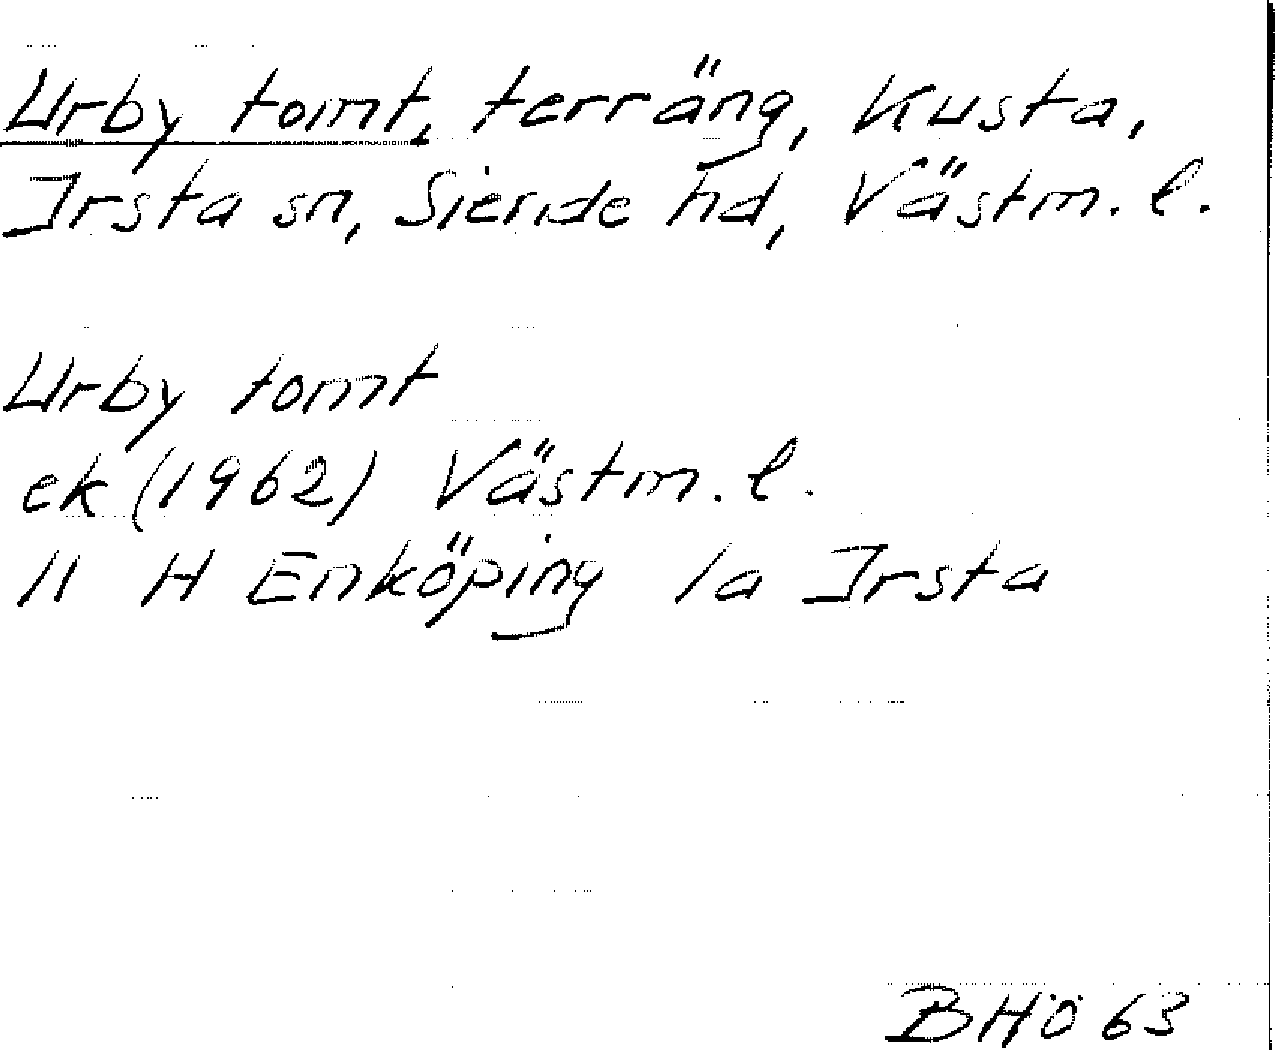 Urby tomt, terräng, Kusta,
Irsta sn, Siende hd, Västm. l.
Urby tomt
ek (1962) Västm. l.
11 H Enköping 1a Irsta
BHÖ 63